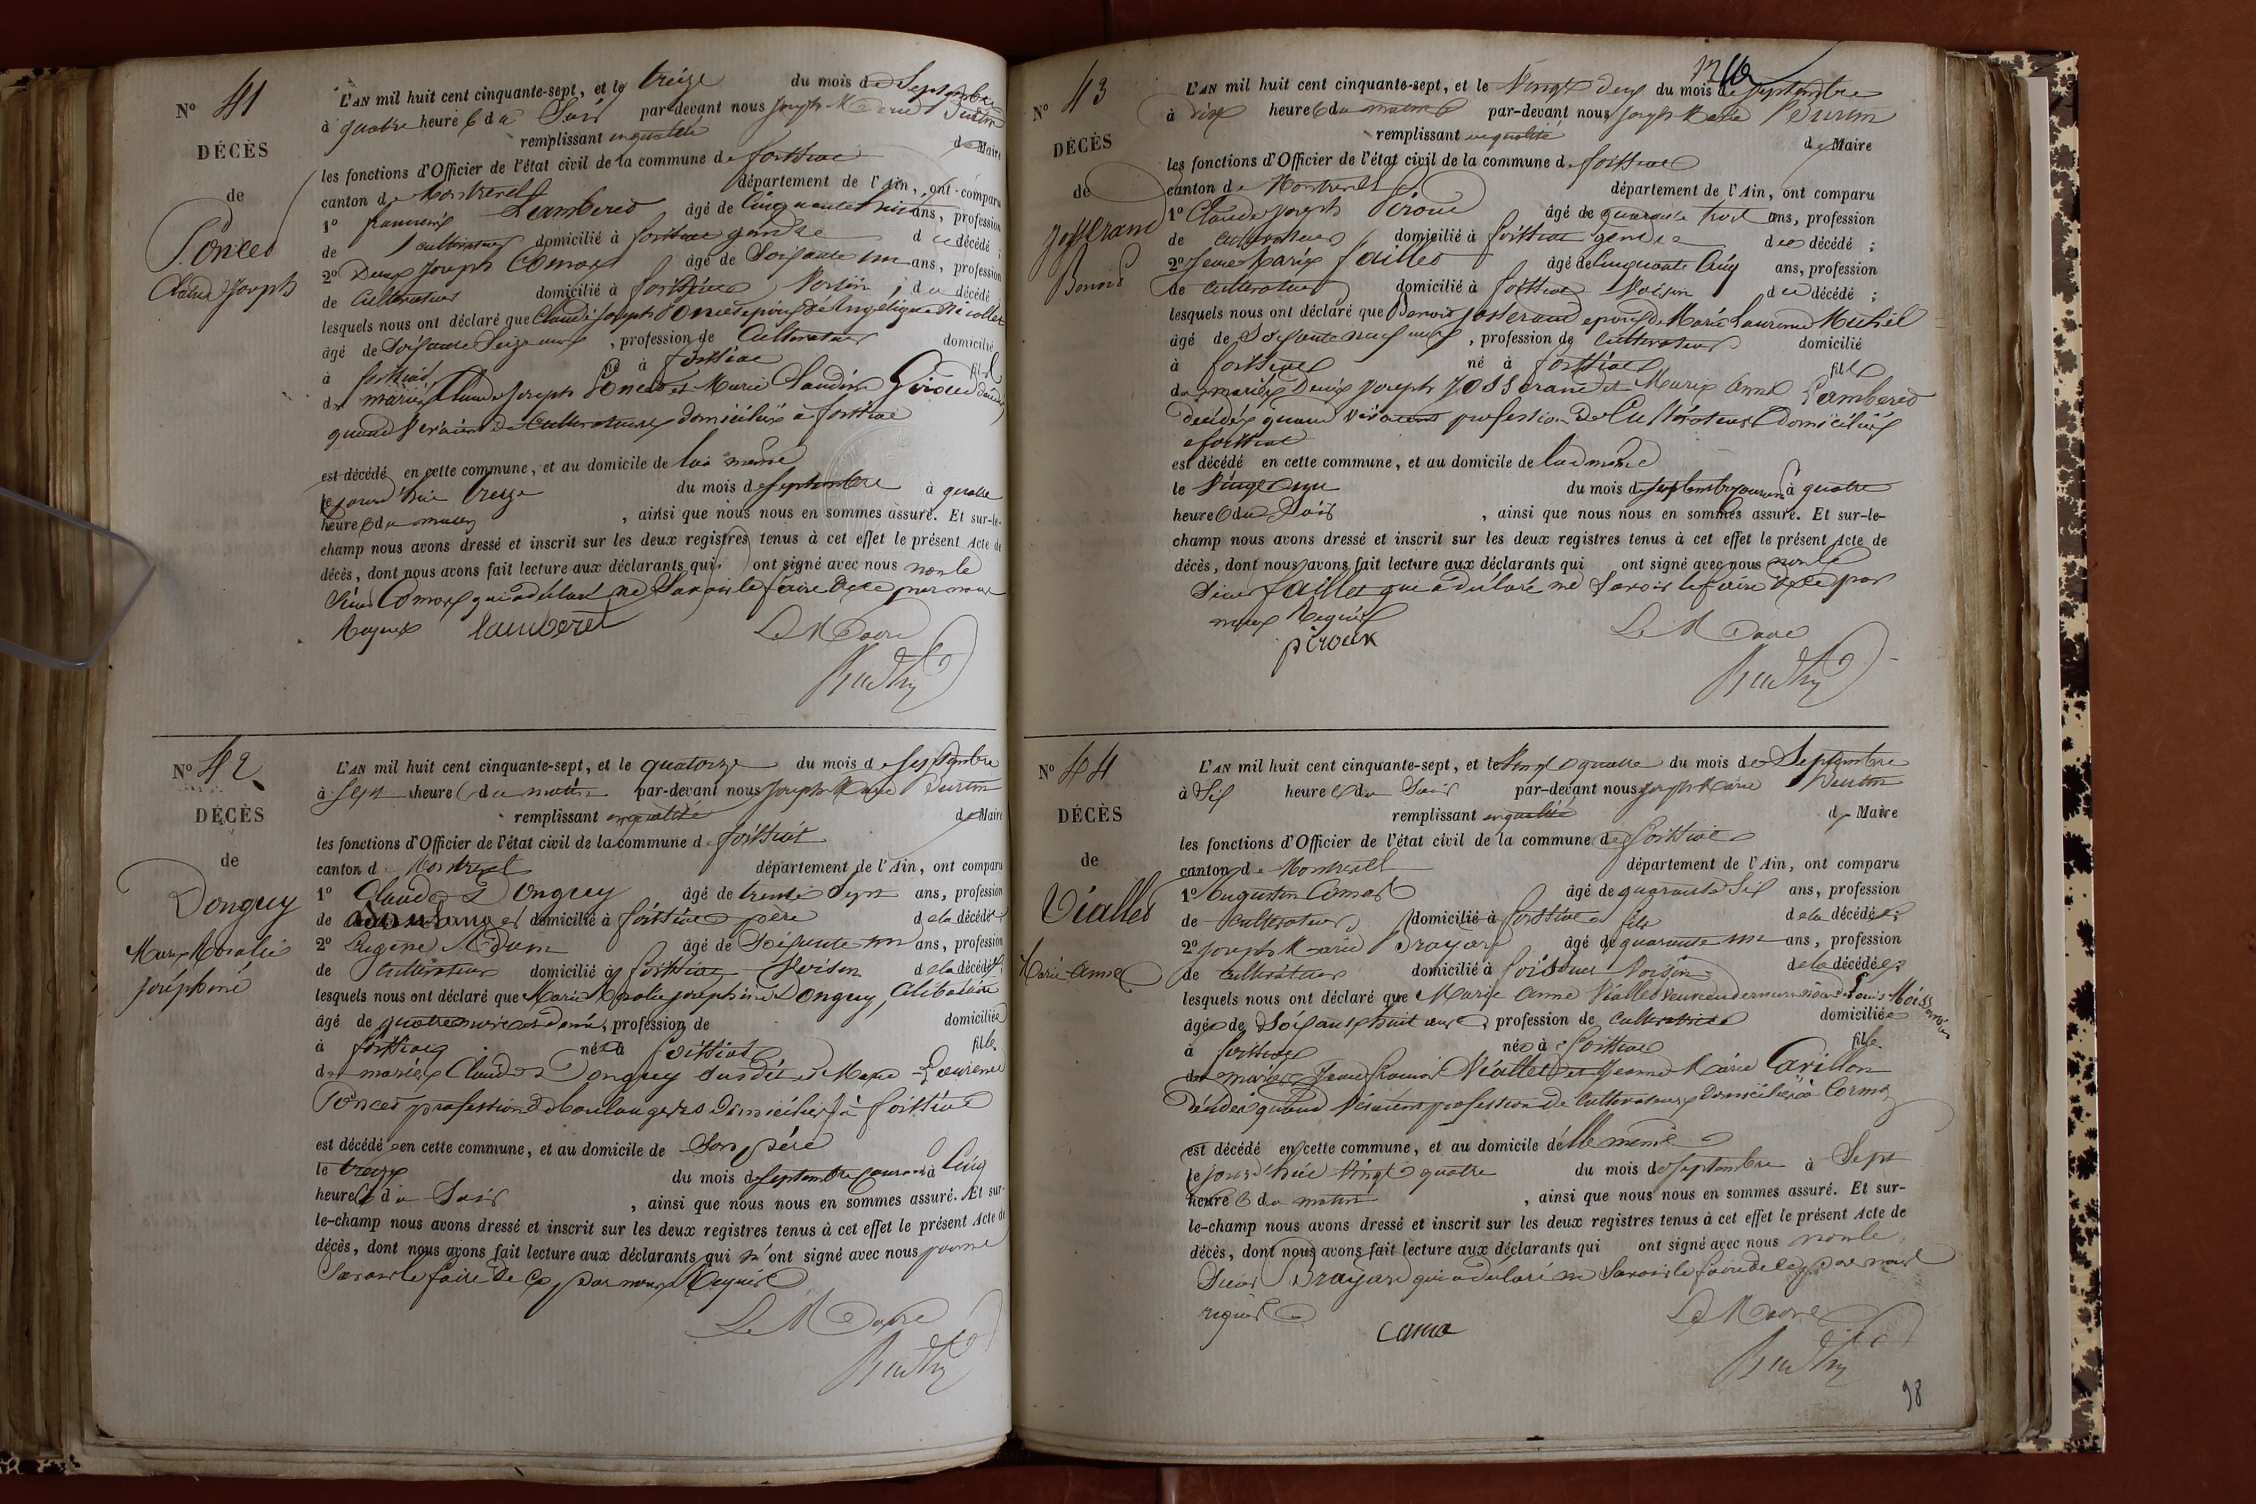 N° 41
DÉCÈS
de
Poncet
Claude Joseph
L'AN mil huit cent cinquante-sept, et le treize du mois de Septembre
à quatre heures du Soir par-devant nous Joseph Marie
remplissant en qualité de Maire
les fonctions d'Officier de l'état civil de la commune de foissiat
canton de Montrevel département de l'Ain, ont comparu
1° francois Lamberet âgé de Cinquante trois ans, profession
de cultivateur domicilié à foissiat gendre du décédé ;
2° Denis Joseph Comas âgé de Soixante un ans, profession
de Cultivateur domicilié à foissiat Voisin du décédé
lesquels nous ont déclaré que Claude Joseph Poncet époux de Angelique Nicollet
âgé de Soixante Seize ans, profession de Cultivateur domicilié
à foissiat né à foissiat fils
de mariés Claude Joseph Poncet et Marie Claudine décédés
quand vivaient de Cultivateurs domiciliés à foissiat
est décédé en cette commune, et au domicile de lui même
le jourd'hui treize du mois de septembre à quatre
heures du matin, ainsi que nous nous en sommes assuré. Et sur-le-
champ nous avons dressé et inscrit sur les deux registres tenus à cet effet le présent Acte de
décès, dont nous avons fait lecture aux déclarants qui ont signé avec nous non le
Sieur Comas qui a déclaré ne Savoir le faire de ce par nous
Requis lamberet Le Maire
N° 42
DÉCÈS
de
Donguy
Marie Rosalie
Joséphine
L'AN mil huit cent cinquante-sept, et le quatorze du mois de septembre
à sept heures du matin par-devant nous Joseph Marie
remplissant en qualité de Maire
les fonctions d'Officier de l'état civil de la commune de foissiat
canton de Montrevel département de l'Ain, ont comparu
1° Claude Donguy âgé de trente Sept ans, profession
de boulanger domicilié à foissiat père de la décédée
2° Eugène Adam âgé de Soixante un ans, profession
de Cultivateur domicilié à foissiat Voisin de la décédée
lesquels nous ont déclaré que Marie Rosalie Joséphine Donguy, Célibataire
âgé de quatre mois et demi, profession de domiciliée
à foissiat née à foissiat fille
de mariés Claude Donguy Susdit et Marie Laurence
Poncet profession de boulangers Domiciliés à foissiat
est décédée en cette commune, et au domicile de Son père
le treize du mois de septembre courant à Cinq
heures du Soir, ainsi que nous nous en sommes assuré. Et sur-
le-champ nous avons dressé et inscrit sur les deux registres tenus à cet effet le présent Acte de
décès, dont nous avons fait lecture aux déclarants qui n'ont signé avec nous pour ne
Savoir le faire de ce par nous Requis
Le Maire
N° 43
DÉCÈS
de
Josserand
Benoit
L'AN mil huit cent cinquante-sept, et le Vingt deux du mois de Septembre
à dix heures du matin par-devant nous Joseph Marie
remplissant en qualité de Maire
les fonctions d'Officier de l'état civil de la commune de foissiat
canton de Montrevel département de l'Ain, ont comparu
1° Claude Joseph Piroux âgé de quarante trois ans, profession
de cultivateur domicilié à foissiat gendre du décédé ;
2° Jean Marie faillet âgé de Cinquante Cinq ans, profession
de cultivateur domicilié à foissiat Voisin du décédé ;
lesquels nous ont déclaré que Benoit Josserand époux de Marie Laurence
âgé de Soixante neuf ans, profession de Cultivateur domicilié
à foissiat né à foissiat fils
de mariés Denis Joseph Josserand et Marie Anne Lamberet
décédés quand vivaient profession de Cultivateurs Domiciliés
à foissiat
est décédé en cette commune, et au domicile de lui même
le Vingt un du mois de septembre courant à quatre
heures du Soir, ainsi que nous nous en sommes assuré. Et sur-le-
champ nous avons dressé et inscrit sur les deux registres tenus à cet effet le présent Acte de
décès, dont nous avons fait lecture aux déclarants qui ont signé avec nous non le
Sieur faillet qui a déclaré ne Savoir le faire de ce par
nous Requis Le Maire
piroux
N° 44
DÉCÈS
de
Viallet
Marie-Anne
L'AN mil huit cent cinquante-sept, et le Vingt quatre du mois de Septembre
à Six heures du Soir par-devant nous Joseph Marie
remplissant en qualité de Maire
les fonctions d'Officier de l'état civil de la commune de foissiat
canton de Montrevel département de l'Ain, ont comparu
1° Augustin Camas âgé de quarante Six ans, profession
de Cultivateur domicilié à foissiat fils de la décédée
2° Joseph Marie Brayard âgé de quarante un ans, profession
de cultivateur domicilié à foissiat Voisin de la décédée
lesquels nous ont déclaré que Marie Anne Viallet veuve en dernier Louis
âgée de Soixante huit ans, profession de Cultivatrice domiciliée
à foissiat née à foissiat fille
de mariés Viallet et Jeanne Marie Carillon
décédés quand Vivaient profession de Cultivateurs Domiciliés à Cormoz
est décédé en cette commune, et au domicile d'elle même
le jourd'hui Vingt quatre du mois de Septembre à Sept
heures du matin, ainsi que nous nous en sommes assuré. Et sur-
le-champ nous avons dressé et inscrit sur les deux registres tenus à cet effet le présent Acte de
décès, dont nous avons fait lecture aux déclarants qui ont signé avec nous non le
Sieur Brayard qui a déclaré ne Savoir le faire de ce par nous
requis Le Maire
cama
98